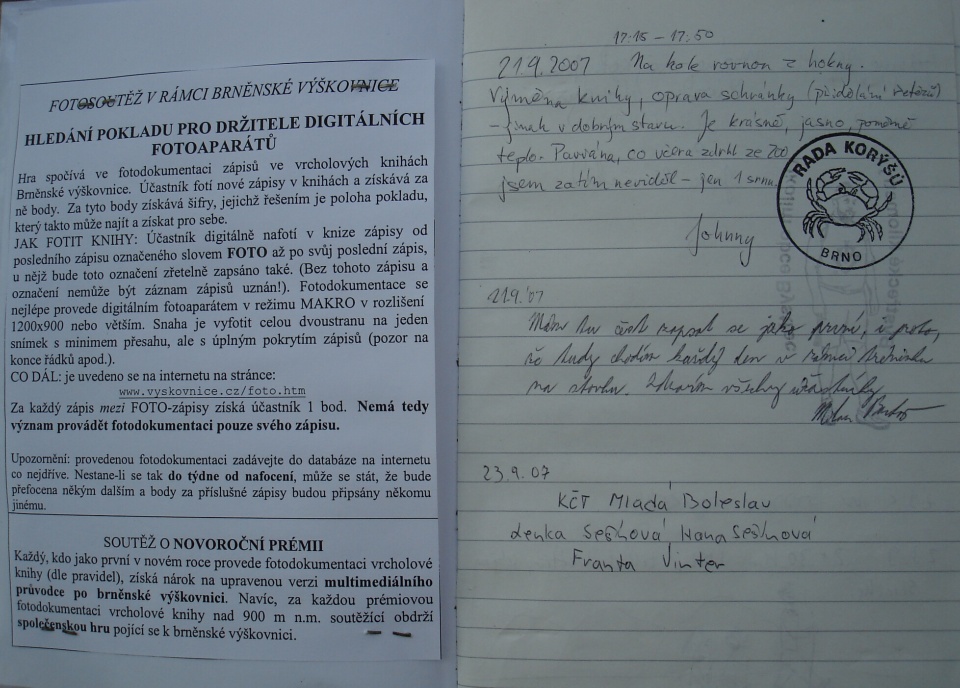 FOTOSOUTĚŽ V RÁMCI BRNĚNSKÉ VÝŠKOVNICE
HLEDÁNÍ POKLADU PRO DRŽITELE DIGITÁLNÍCH
FOTOAPARÁTŮ
Hra spočívá ve fotodokumentaci zápisů ve vrcholových knihách
Brněnské výškovnice. Účastník fotí nové zápisy v knihách a získává za
ně body. Za tyto body získává šifry, jejichž řešením je poloha pokladu,
který takto může najít a získat pro sebe.
JAK FOTIT KNIHY: Účastník digitálně nafotí v knize zápisy od
posledního zápisu označeného slovem FOTO až po svůj poslední zápis,
u nějž bude toto označení zřetelně zapsáno také. (Bez tohoto zápisu a
označení nemůže být záznam zápisů uznán!). Fotodokumentace se
nejlépe provede digitálním fotoaparátem v režimu MAKRO v rozlišení
1200x900 nebo větším. Snaha je vyfotit celou dvoustranu na jeden
snímek s minimem přesahu, ale s úplným pokrytím zápisů (pozor na
konce řádků apod.).
CO DÁL: je uvedeno se na internetu na stránce:
www.vyskovnice.cz/foto.htm
Za každý zápis mezi FOTO-zápisy získá účastník 1 bod. Nemá tedy
význam provádět fotodokumentaci pouze svého zápisu.
Upozornění: provedenou fotodokumentaci zadávejte do databáze na internetu
co nejdříve. Nestane-li se tak do týdne od nafocení, může se stát, že bude
přefocena někým dalším a body za příslušné zápisy budou připsány někomu
jinému.
SOUTĚŽ O NOVOROČNÍ PRÉMII
Každý, kdo jako první v novém roce provede fotodokumentaci vrcholové
knihy (dle pravidel), získá nárok na upravenou verzi multimediálního
průvodce po brněnské výškovnici. Navíc, za každou prémiovou
fotodokumentaci vrcholové knihy nad 900 m n.m. soutěžící obdrží
společenskou hru pojící se k brněnské výškovnici.
17:15 – 17:50
21.9.2007 Na kole rovnou z
Výměna knihy, oprava schránky (přidělání řetězů)
– jinak v dobrým stavu. Je krásně, jasno, poměrně
teplo. Paviána, co včera zdrhl ze ZOO
jsem zatím neviděl – jen 1 srnu
Johnny
RADA KORÝŠŮ
BRNO
21.9.'07
Mám tu čest zapsat se jako první, i proto,
že tudy chodím každý den v rámci tréninku
na stovku. Zdravím všechny účastníky
Milan
23.9.07
KČT Mladá Boleslav
Lenka Hana
Franta Vinter